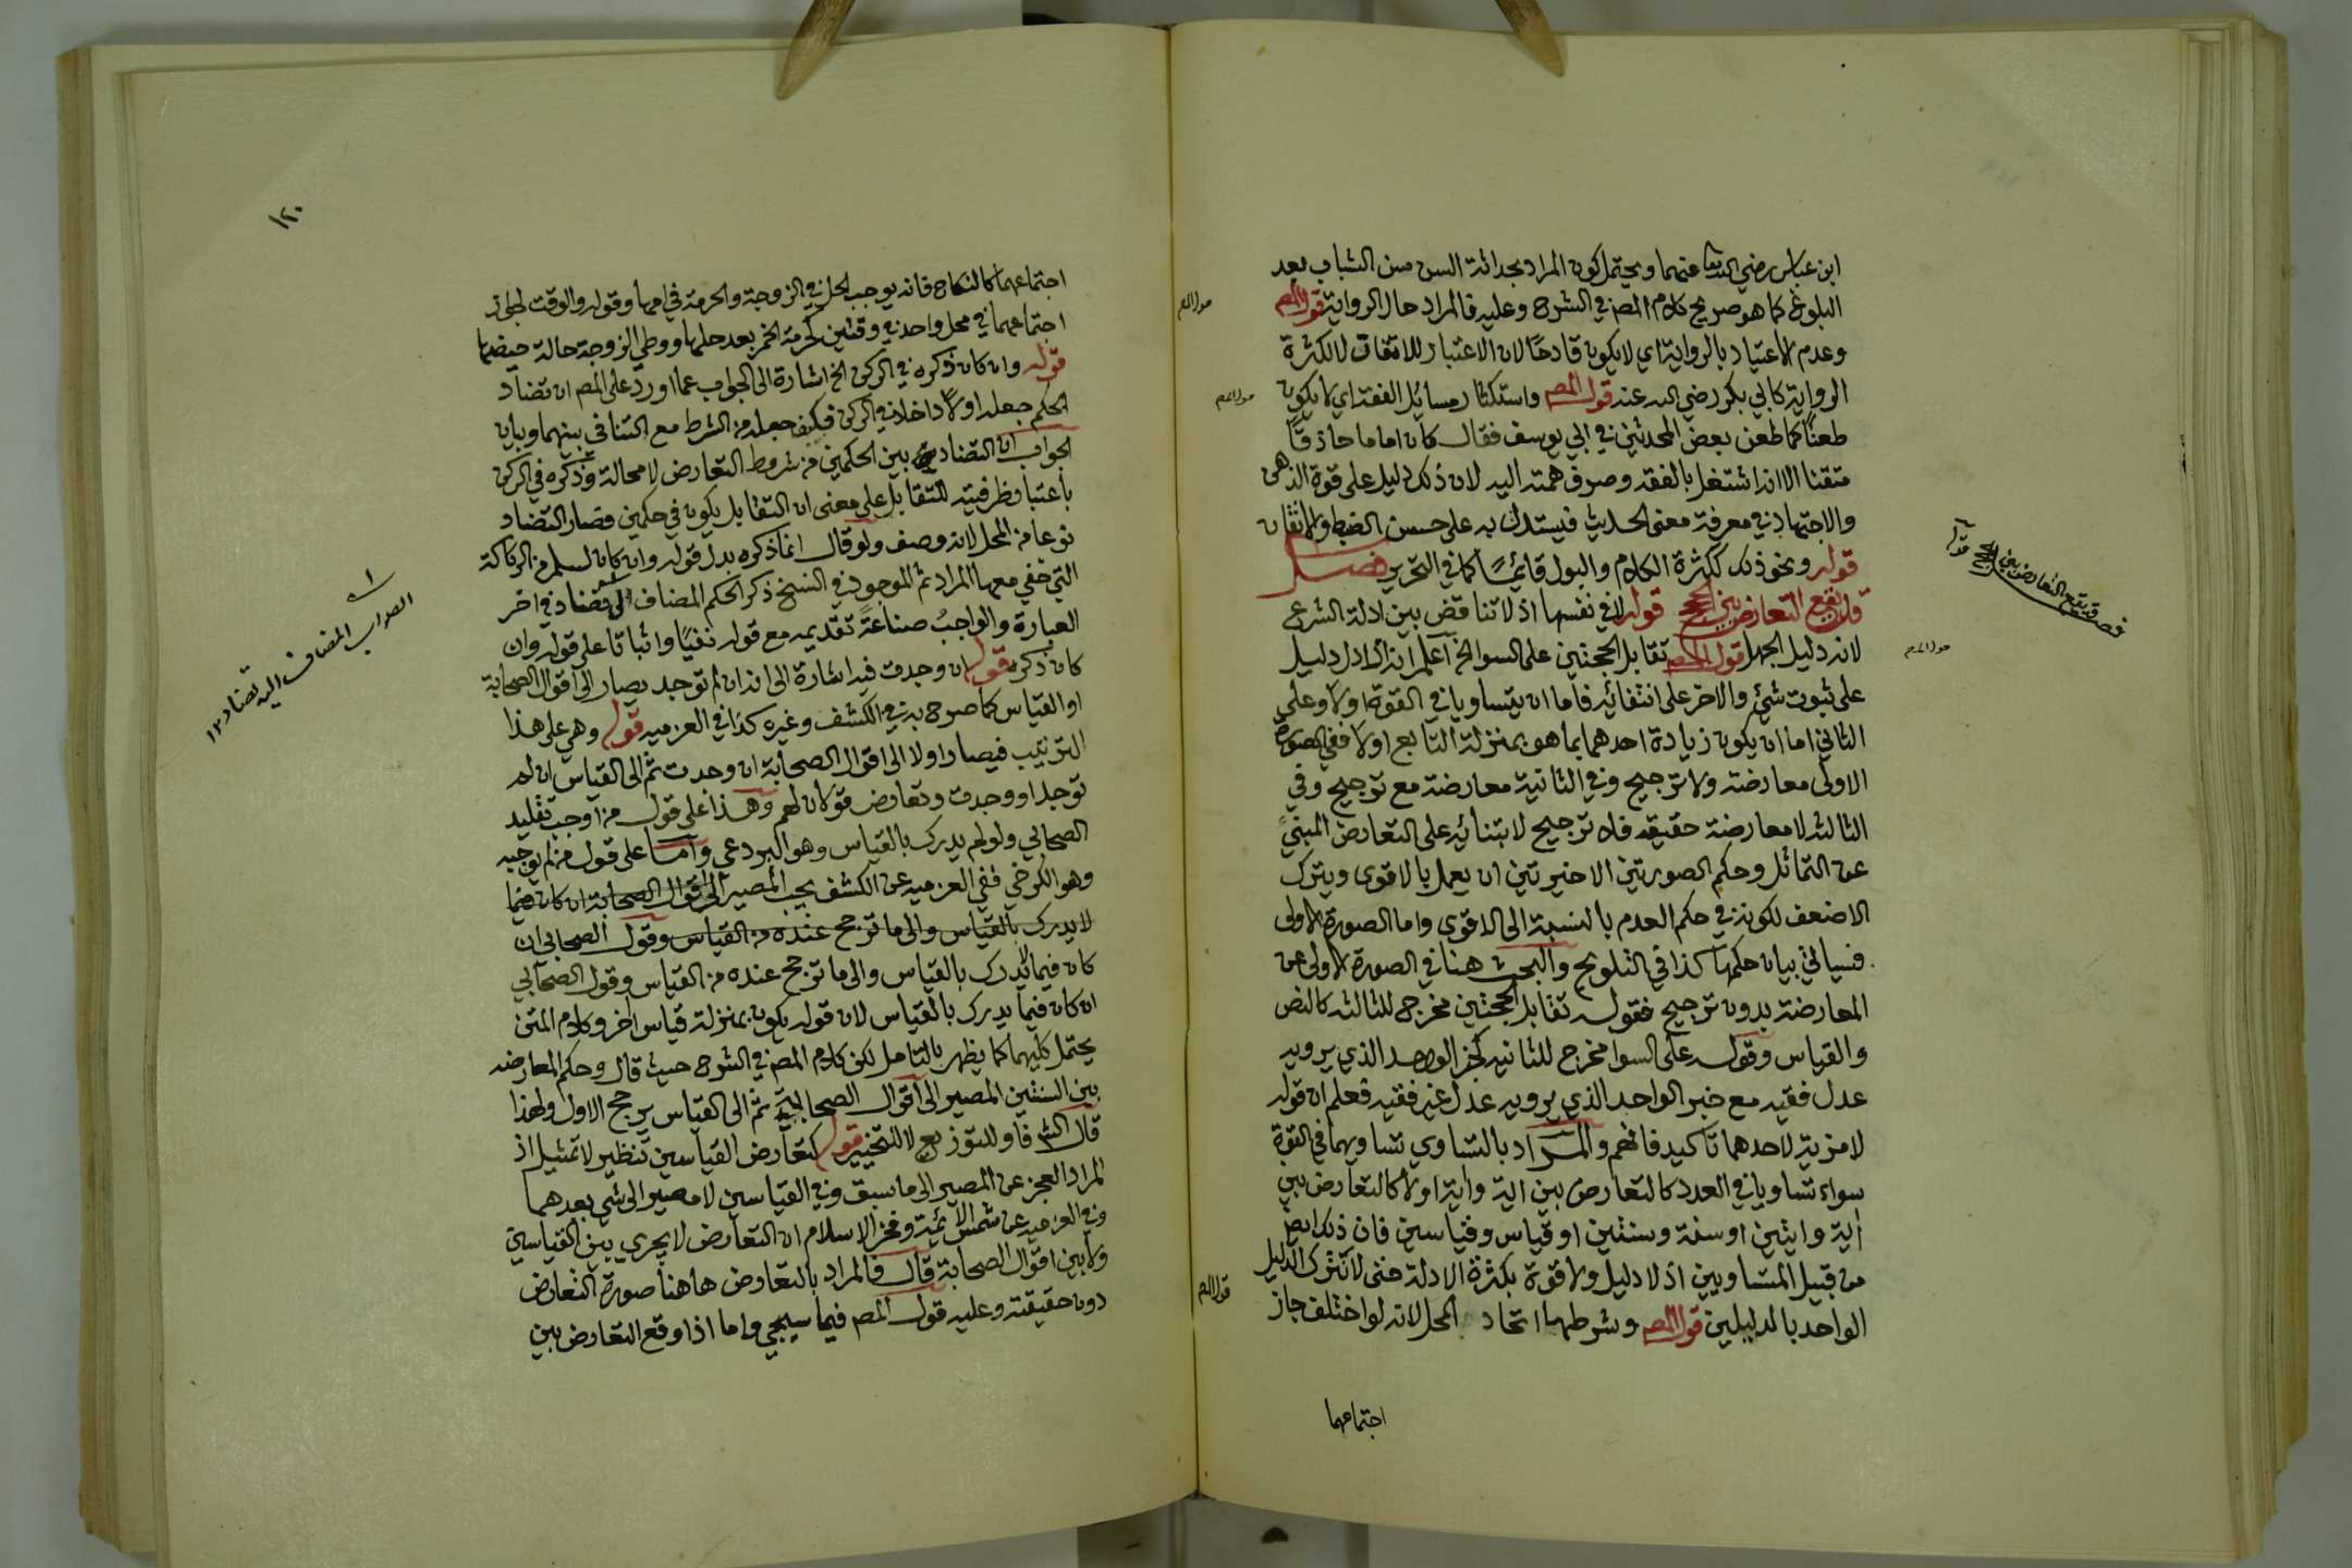 ابن عباس رضي الله عنهما ويحتمل كون المراد بحداثة السن سن الشباب بعد
البلوغ كما هو صريح كلام المصـ في الشرح وعليه فالمراد حال الرواية قول المصـ
وعدم الاعتياد بالرواية اي لا يكون قادحًا لان الاعتبار للاتقان لا لكثرة
الرواية كابي بكر رضي الله عنه قول المصـ واستكثار مسائل الفقه اي لا يكون
طعنًا كما طعن بعض المحدثين في ابي يوسف فقال كان اماما حاذقًا
متقنا الا انه اشتغل بالفقه وصرف همته اليه لان ذلك دليل على قوة الذهن
والاجتهاد في معرفة معنى الحديث فيستدل به على حسن الضبط والاتقان
قوله ونحو ذلك ككثرة الكلام والبول قائمًا كما في التحرير فصل
قد يقع التعارض بين الحجج قوله لا في نفسها اذ لا تناقض بين ادلة الشرع
لانه دليل الجهل قول المصـ تقابل الحجتين على السوا الخ اعلم انه اذا دل دليل
على ثبوت شيء والاخر على انتفائه فاما ان يتساويا في القوة اولا وعلى
الثاني اما ان يكون زيادة احدهما بما هو بمنزلة التابع اولا ففي الصورة
الاولى معارضة ولا ترجيح وفي الثانية معارضة مع ترجيح وفي
الثالثه لا معارضة حقيقه فلا ترجيح لابتنائه على التعارض المبني
عن التماثل وحكم الصورتين الاخيرتين ان يعمل بالاقوى ويترك
الاضعف لكونه في حكم العدم بالنسبة الى الاقوى واما الصورة الاولى
فسياتي بيان حكمها كذا في التلويح والبحث هنا في الصورة الاولى عن
المعارضة بدون ترجيح فقوله تقابل الحجتين مخرج للثالثه كالنص
والقياس وقوله على السوا مخرج للثانيه كخبر الواحد الذي يرويه
عدل فقيه مع خبر الواحد الذي يرويه عدل غير فقيه فعلم ان قوله
لا مزية لاحدهما تاكيد فافهم والمراد بالتساوي تساويهما في القوة
سواء تساويا في العدد كالتعارض بين اية واية اولا كالتعارض بين
اية وايتين او سنة وسنتين او قياس وقياسين فان ذلك ايضا
من قبيل المتساويين اذ لا دليل ولا قوة بكثرة الادلة حتى لا تترك الدليل
الواحد بالدليلين قول المصـ وشرطها اتحاد المحل لانه لو اختلف جاز
اجتماعهما
قول المصـ
قول المصـ
قول المصـ
قول المصـ
فصل قد يقع التعارض بين الحجج
قوله
١٢٠
اجتماعهما كالنكاح فانه يوجب الحل في الزوجة والحرمة في امها وقوله والوقت لجواز
اجتماعهما في محل واحد في وقتين كحرمة الخمر بعد حلها ووطي الزوجة حالة حيضها
قوله وان كان ذكره في الركن الخ اشارة الى الجواب عما اورد على المصـ ان تضاد
الحكم جعله اولًا داخلا في الركن فكيف جعله من الشرط مع التنافي بينهما وبيان
الجواب ان التضاد بين الحكمين من شروط التعارض لا محالة وذكره في الركن
باعتبار ظرفيته للتقابل على معنى ان التقابل يكون في حكمين فصار التضاد
نوعا من المحل لانه وصف ولو قال انما ذكره بدل قوله وان كان لسلم من الركاكة
التي خفي معها المراد ثم الموجود في النسخ ذكر الحكم المضاف الى تضاد في اخر
العبارة والواجبُ صناعةً تقديمه مع قوله نفيًا واثباتا على قوله وان
كان ذكره قوله ان وجدت فيه اشارة الى انه ان لم توجد يصار الى اقوال الصحابة
او القياس كما صرح به في الكشف وغيره كذا في العزميه قوله وهي على هذا
الترتيب فيصار اولا الى اقوال الصحابة ان وجدت ثم الى القياس ان لم
توجد او وجدت وتعارض قولان لهم وهذا على قول من اوجب تقليد
الصحابي ولو لم يدرك بالقياس وهو البردعي واما على قول من لم يوجبه
وهو الكرخي ففي العزميه عن الكشف يجب المصير الى اقوال الصحابة ان كان فيما
لا يدرك بالقياس والى ما ترجح عنده من القياس وقول الصحابي ان
كان فيما لا يدرك بالقياس والى ما ترجح عنده من القياس وقول الصحابي
ان كان فيما يدرك بالقياس لان قوله يكون بمنزلة قياس اخر وكلام المتن
يحتمل كليهما كما يظهر بالتامل لكن كلام المصـ في الشرح حيث قال وحكم المعارضه
بين السنتين المصير الى اقوال الصحابة ثم الى القياس يرجح الاول ولهذا
قال الشـ فاو للتوزيع لا للتخيير قوله كتعارض القياسين تنظير لا تمثيل اذ
المراد العجز عن المصير الى ما سبق وفي القياسين لا مصير الى شي بعدهما
وفي العزميه عن شمس الائمة وفخر الاسلام ان التعارض لا يجري بين القياسين
ولا بين اقوال الصحابة قال فالمراد بالتعارض هاهنا صورة التعارض
دون حقيقته وعليه قول المصـ فيما سيجي واما اذا وقع التعارض بين
الصواب المضاف اليه تضاد ١٢